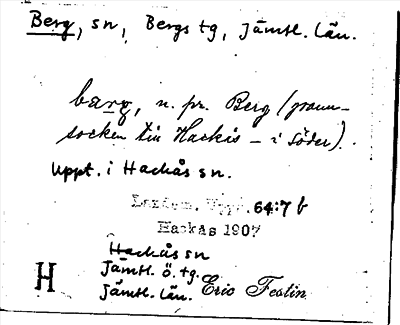 Berg, sn, Bergs tg, Jämtl. län.
barg, n. pr. Berg (grann-
socken till Hackås – i söder).
Uppt. i Hackås sn.
Landsm. Uppt. 64:7 b
Hackås 1907
Hackås sn
Jämtl. ö. tg.
H
Jämtl. län.
Eric Festin